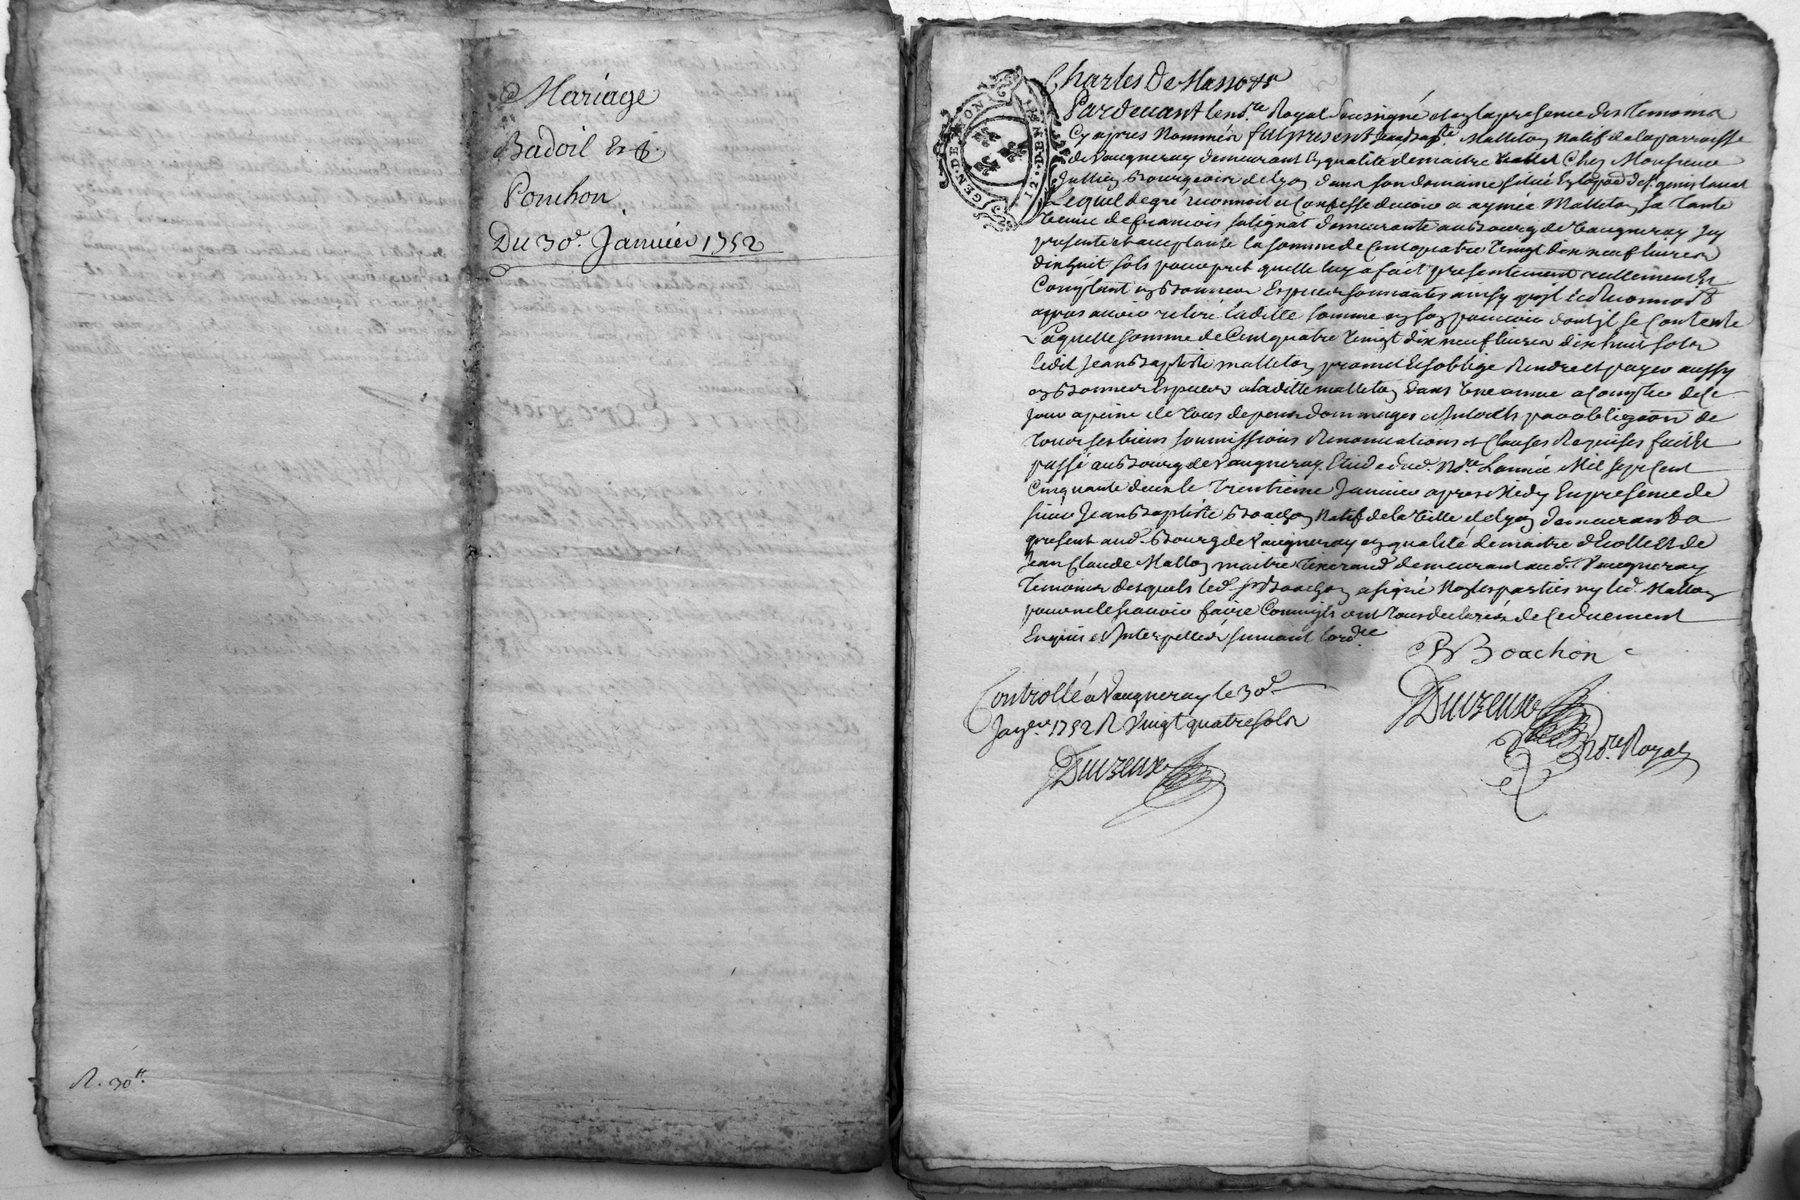 Mariage
Badoil Et
Ponchon
Du 30e. Janvier 1752
R. 30tt.
GEN. DE LYON
Pardevant le nore Royal soussigné et en la presence des temoins
Cy apres Nommés fut present Jean Bapte Matteton Natif de la parroisse
de Vaugneray demeurant en qualité de maitre Chez Monsieur
Bourgeois de Lyon dans son domaine situé
Lequel de gré reconnoit et Confesse devoir a aymée Matteton sa tante
Veuve de francois salignat demeurante au Bourg de Vaugneray Icy
presente et acceptante la somme de Cent quatre Vingt dix neuf livres
dix huit sols pour pret quelle luy a fait presentement reellement et
Comptant en Bonnes Especes sonnantes ainsy quil le Reconnoit
apres avoir retiré laditte somme en son pouvoir dont jl se Contente
Laquelle somme de Cent quatre Vingt dix neuf livres dix huit sols
Ledit Jean Baptiste matteton promet et soblige Rendre et payer aussy
en Bonnes Especes a laditte matteton dans Une année a Compter de Ce
Jour a peine de tous depens dommages et Interets par obligaon de
tous ses biens soumissions Renonciations et Clauses Requises fait et
passé au Bourg de Vaugneray Etude dud. Nore. Lannée Mil sept Cent
Cinquante deux le trentieme Janvier apres Midy En presence de
sieur Jean Baptiste Boachon Natif de la Ville de Lyon demeurant a
present aud. Bourg de Vaugneray en qualité de maitre dEcolle Et de
Jean Claude Matton maitre tisserand demeurant aud. Vaugneray
temoins desquels led. sr Boachon a signé Non les parties ny led. Matton
pour ne le scavoir faire Comme jls ont tous declarés de Ce duement
Enquis et Interpellés suivant lordre
Boachon
Controllé a Vaugneray le 30e
Janer. 1752 R Vingt quatre sols
Duizeux
Duizeux
Nore Royal